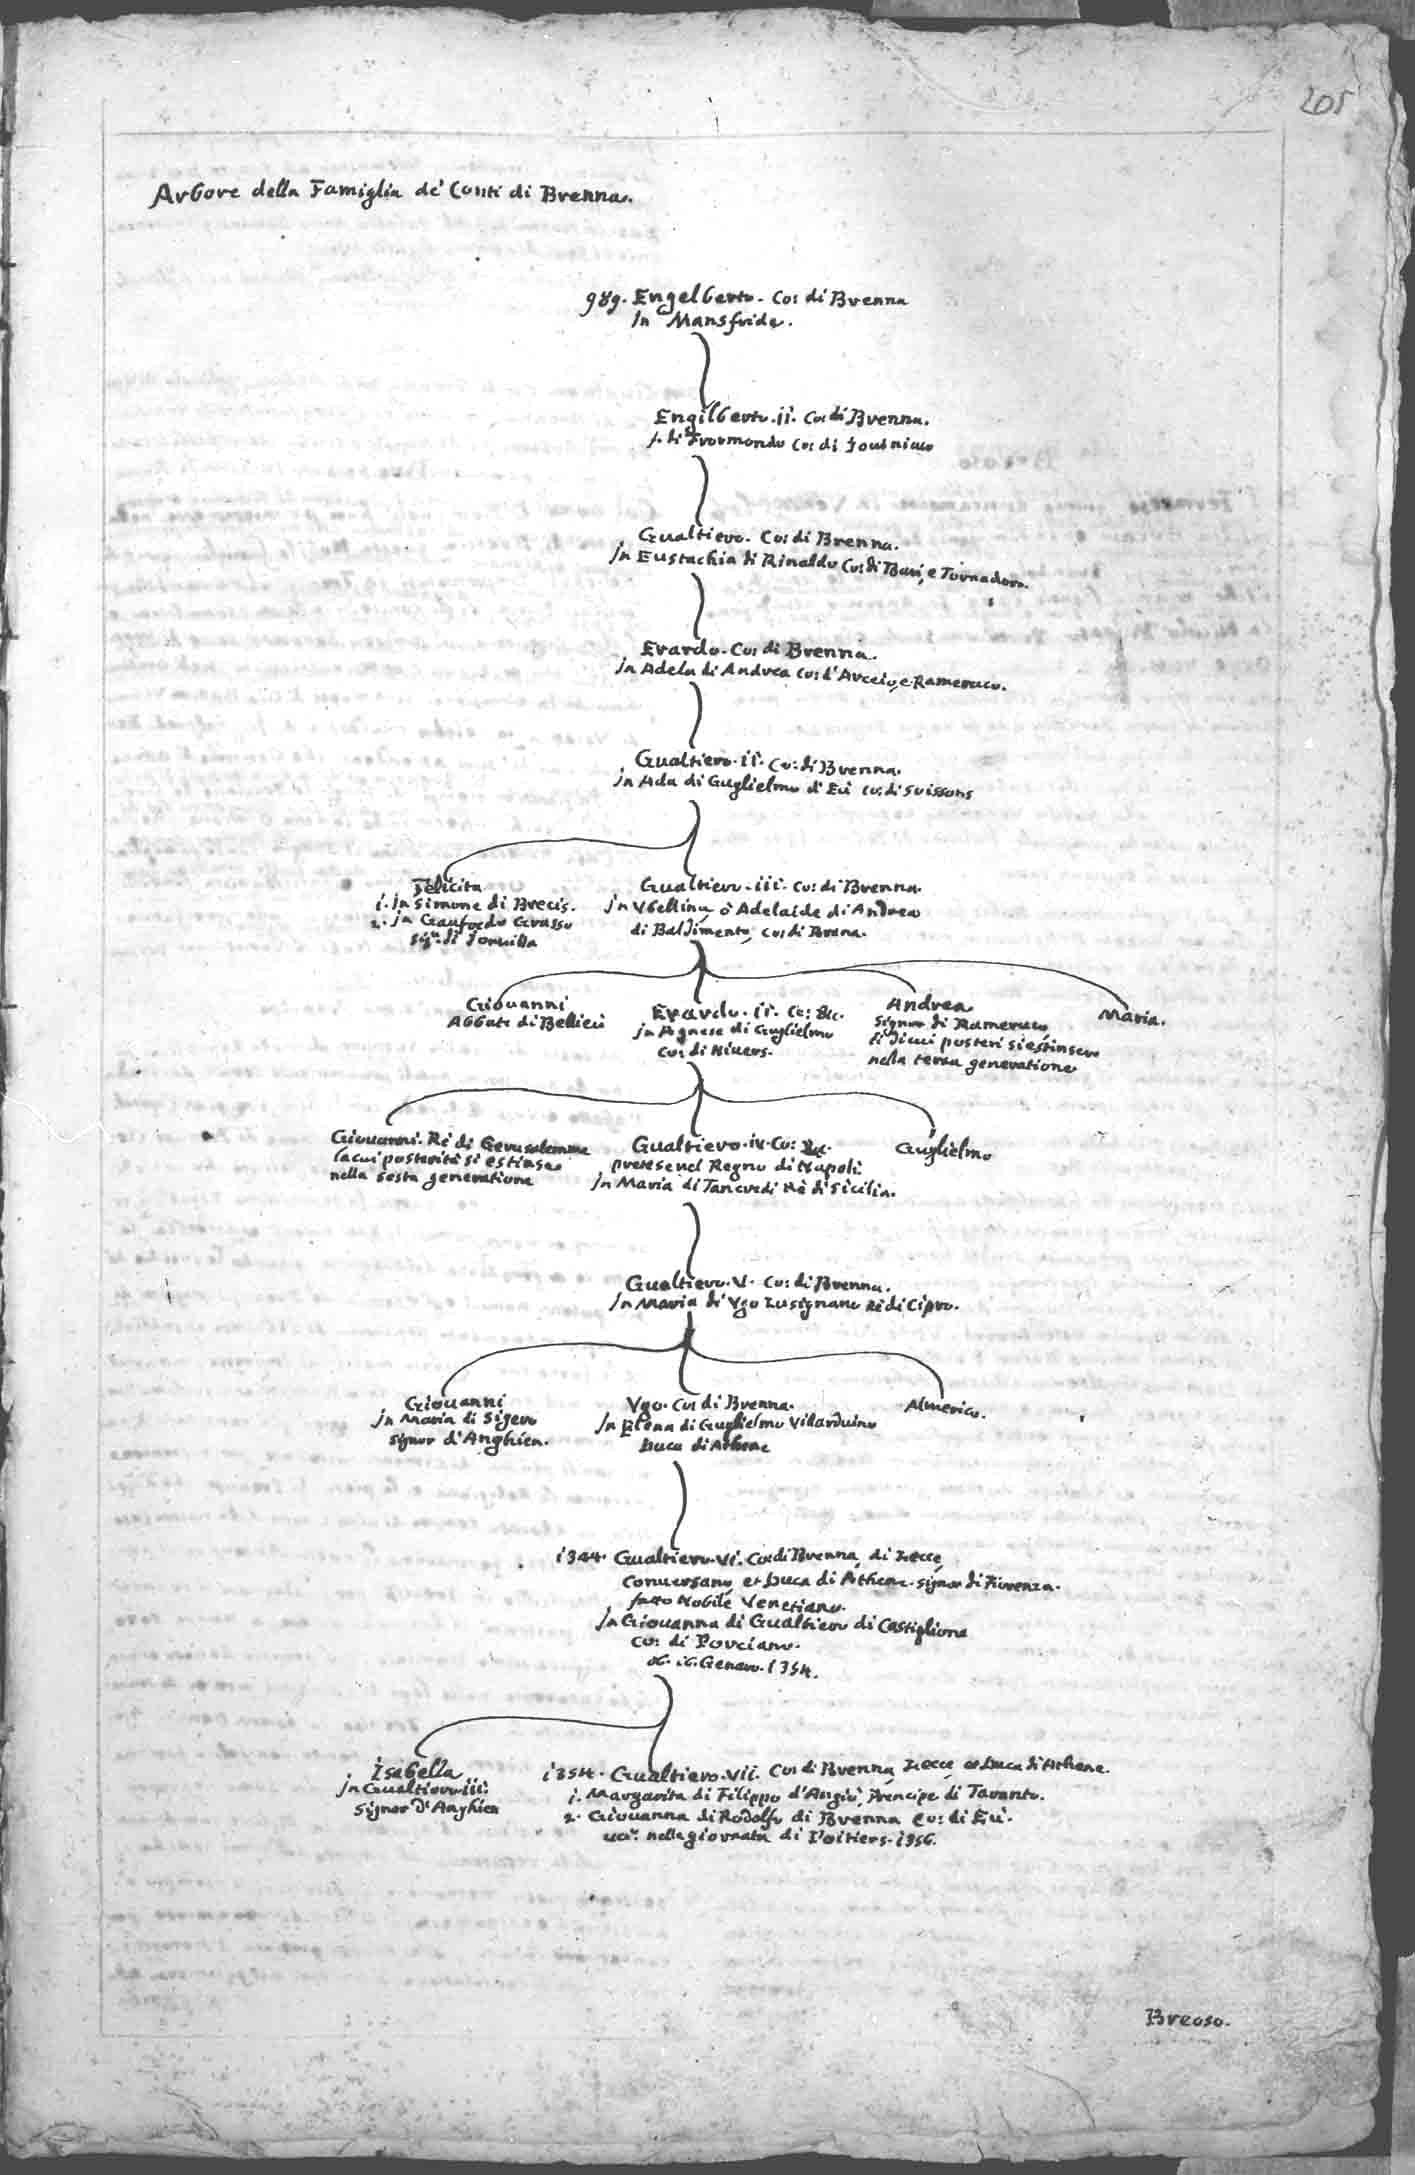 205
Arbore della Famiglia de' Conti di Brenna.
989. Engelberto. Co: di Brenna
In Mansfride.
Engilberto. ii. Co: di Brenna.
f. di Fromondo Co: di
Gualtiero. Co: di Brenna.
In Eustachia di Rinaldo Co: di Bari, e Tornadoro.
Erardo. Co: di Brenna.
in Adela di Andrea Co: d'Arceio, e Rameruco.
Gualtiero. ii. Co: di Brenna.
in Ada di Guglielmo d'Eù Co: di Soissons
Felicita
1. in Simone di Brecis.
2. in Graufredo Grasso
Sig.r di Jonuilla
Gualtiero. iii. Co: di Brenna.
in Vbellina, ò Adelaide di Andrea
di Baldimento, Co: di Brena.
Giouanni
Abbate di Bellieù
Erardo. ii. Co: &c.
in Agnese di Guglielmo
Co: di Niuers.
Andrea
Signor di Rameruco
li di cui posteri si estinsero
nella terza generatione
Maria.
Giouanni. Rè di Gerusalemme
la cui posterità si estinse
nella sesta generatione
Gualtiero. iv. Co: &c.
pretese nel Regno di Napoli
in Maria di Tancredi Rè di Sicilia.
Guglielmo
Gualtiero. V. Co: di Brenna.
in Maria di Vgo Lusignano Rè di Cipro.
Giouanni
in Maria di Sigero
Signor d'Anghien.
Vgo. Co: di Brenna.
in Elena di Guglielmo Villarduino
Duca di Athene
Almerico.
1344. Gualtiero. Vi. Co: di Brenna, di Lecce,
Conuersano, et Duca di Athene. Signor di Fiorenza.
fatto Nobile Venetiano.
in Giouanna di Gualtiero di Castiglione
Co: di Porciano.
ob. Genaro. 1354.
Isabella
in Gualtiero iii.
Signor d'Anghien
1354. Gualtiero. Vii. Co: di Brenna, Lecce, et Duca di Athene.
1. Margarita di Filippo d'Angiò, Prencipe di Taranto.
2. Giouanna di Rodolfo di Brenna Co: di Eù.
ucc.º nella giornata di Poitiers. 1356.
Breoso.